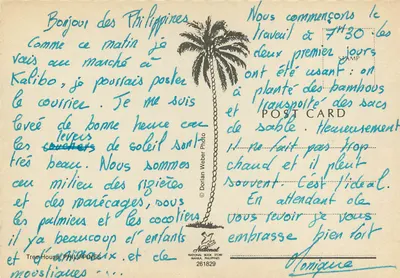 Bonjour des Philippines
Comme ce matin je
vais au marché à
Kalibo, je pourrais poster
le courrier. Je me suis
levée de bonne heure car
les couchers levers de soleil sont
très beau. Nous sommes
au milieu des rizières
et des marécages, sous
les palmiers et les cocotiers
il y a beaucoup d'enfants
et d'animaux et de
moustiques ....
Nous commençons le
travail à 7H30 - les
deux premier jours
ont été usant : on
a planté des bambous
et transporté des sacs
de sable. Heureusement
il ne fait pas trop
chaud et il pleut
souvent. C'est l'idéal.
En attendant de
vous revoir je vous
embrasse bien fort
Monique
STAMP
POST CARD
© Dorian Weber Photo
NATIONAL BOOK STORE
MANILA, PHILIPPINES
261829